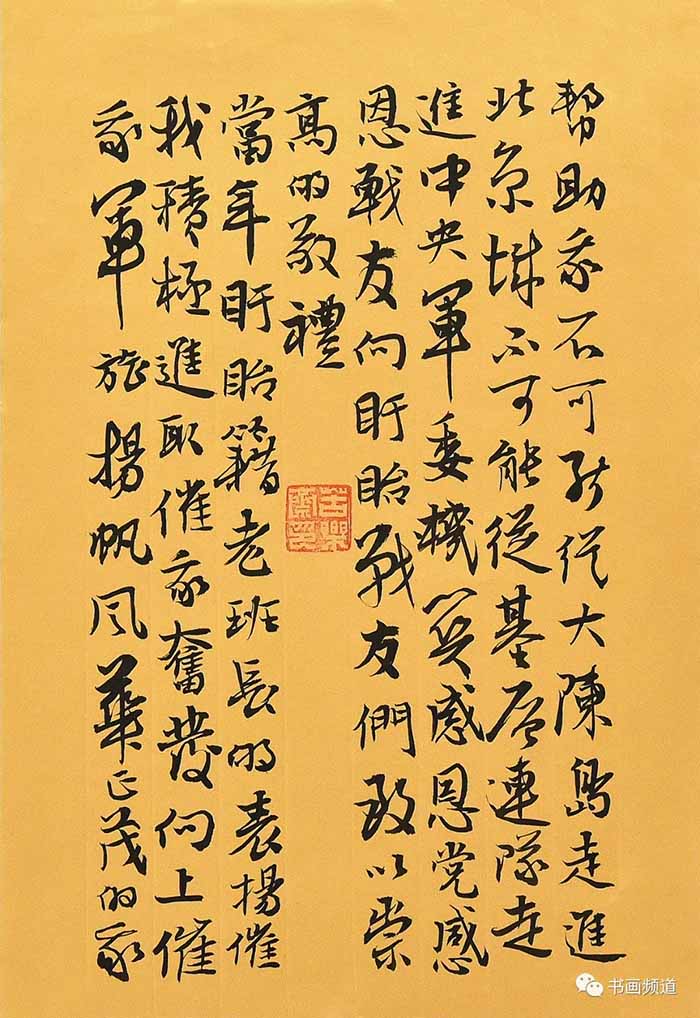 幫助我不可能從大陳島走進
北京城不可能從基層連隊走
進中央軍委機關感恩党感
恩戰友向盱眙戰友們致以崇
高的敬禮
當年盱眙籍老班長的表揚催
我積極進取催我奮發向上催
我軍旅揚帆風華正茂的我
苦樂齋印
书画频道